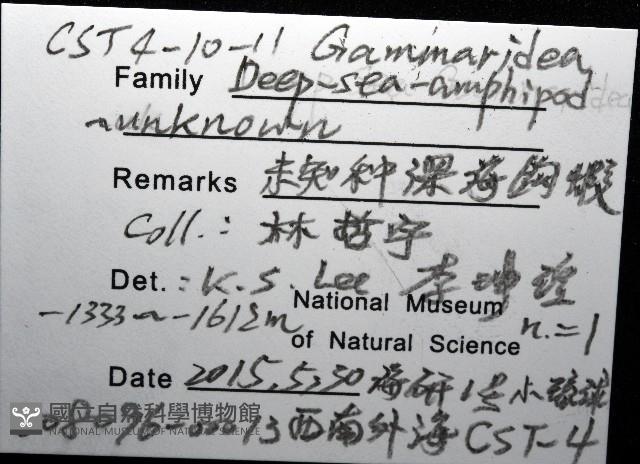 CST4-10-11 Gammaridea
Family Deep-sea-amphipod
-unknown
Remarks 未知种深海鉤蝦
Coll.: 林哲宇
Det.: K.S. Lee 李坤瑄
-1333m~-1612m
National Museum
of Natural Science n.=1
Date 2015.5.30 海研1号小琉球
西南外海CST-4
國立自然科學博物館
NATIONAL MUSEUM OF NATURAL SCIENCE